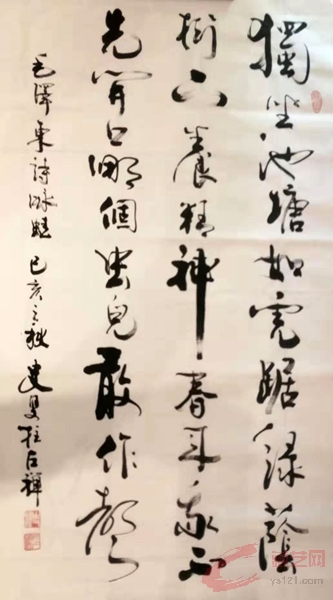 獨坐池塘如虎踞綠蔭
樹下養精神春來我不
先開口哪個虫兒敢作聲
毛澤東詩咏蛙 己亥之秋
ya121.com